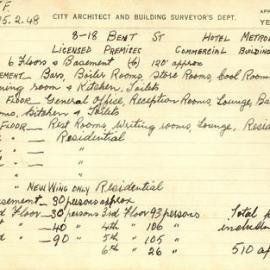 T.F.
5.2.48
CITY ARCHITECT AND BUILDING SURVEYOR'S DEPT.
8-18 BENT ST HOTEL METROP
LICENSED PREMISES COMMERCIAL BUILDING
6 Floors & Basement (6) 120 approx
EMENT - Bars, Boiler Rooms, Store Rooms, Cool Rooms
ning room & Kitchen, Toilets
FLOOR - General Office, Reception Rooms, Lounge, Ba
oms, Kitchen & Toilets
FLOOR - Rest Rooms, Writing rooms, Lounge, Resid
" - Residential
" -
" -
" - NEW WING ONLY Residential
asement - 30 persons approx
d Floor - 30 persons 3rd Floor 93 persons Total p
" - 40 " 4th " 106 " includin
" - 90 " 5th " 105 "
6th " 26 " 510 ap